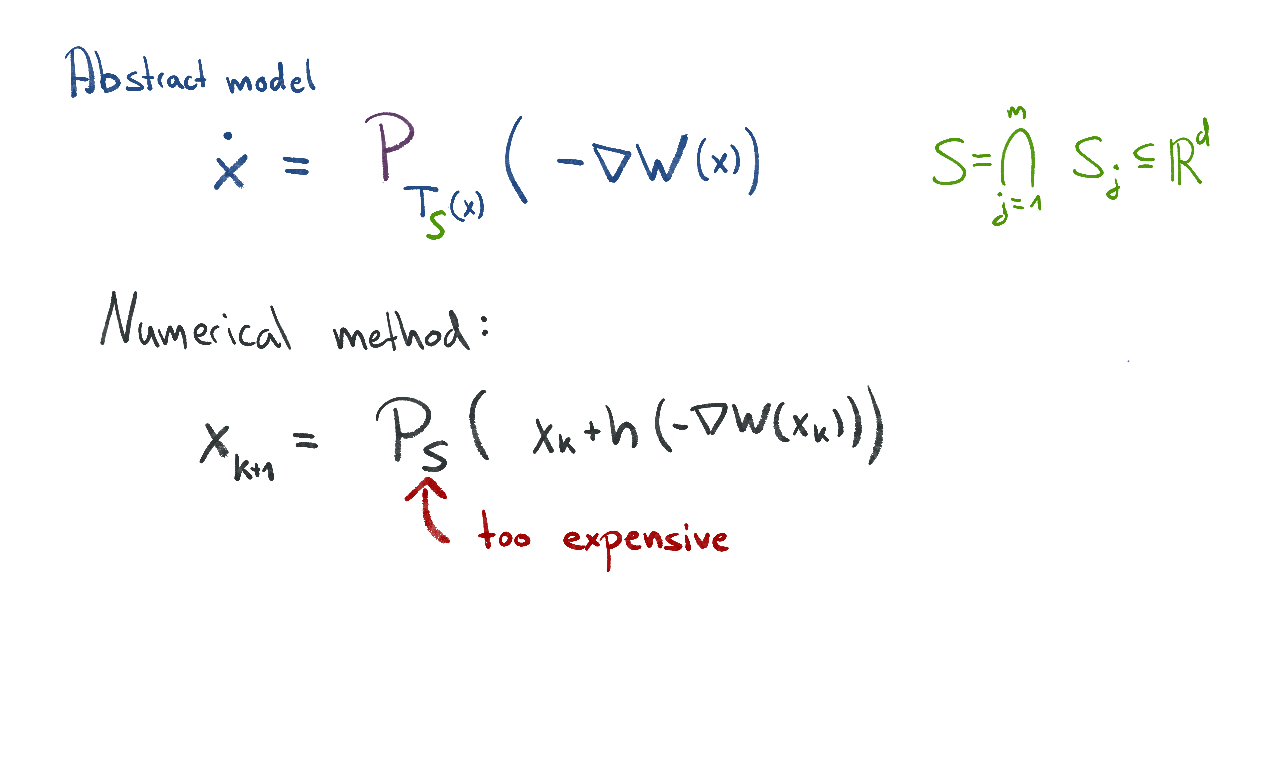 Abstract model
ẋ = P_{T_S(x)} ( -∇W(x) )
S = ⋂_{j=1}^{m} S_j ⊆ ℝ^d
Numerical method:
x_{k+1} = P_S ( x_k + h (-∇W(x_k)) )
too expensive